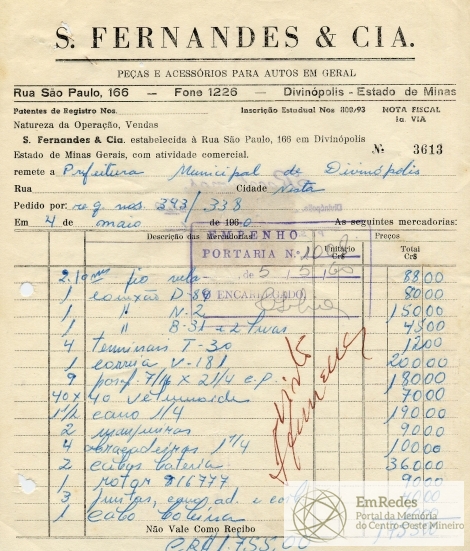 S. FERNANDES & CIA.
PEÇAS E ACESSÓRIOS PARA AUTOS EM GERAL
Rua São Paulo, 166 — Fone 1226 — Divinópolis - Estado de Minas
Patentes de Registro Nos. Inscrição Estadual Nos 800/93 NOTA FISCAL
Natureza da Operação, Vendas 1a. VIA
S. Fernandes & Cia. estabelecida à Rua São Paulo, 166 em Divinópolis
Estado de Minas Gerais, com atividade comercial. Nº 3613
remete a Prefeitura Municipal de Divinópolis
Rua Cidade nesta
Pedido por: req nos. 343/338
Em 4 de maio de 1960 As seguintes mercadorias:
EMPENHO
Descrição das Mercadorias Preços
PORTARIA N.º
Unitário Cr$ Total Cr$
5/5/60
O ENCARREGADO
fio vela 88 00
1 D-89 80 00
1 " N-2 150 00
1 " B-31 48 00
4 terminais T-30 12 00
1 correia V-181 200 00
9 paraf. 7/16 x 2 1/4 c.p. 180 00
40 x 40 70 00
1 1/2 cano 1/4 190 00
2 90 00
4 abraçadeiras 1 1/4 100 00
2 cabos bateria 360 00
1 rotor 90 00
3 juntas,
1 cabo
Não Vale Como Recibo
1.755,00
EmRedes
Portal da Memória
do Centro-Oeste Mineiro